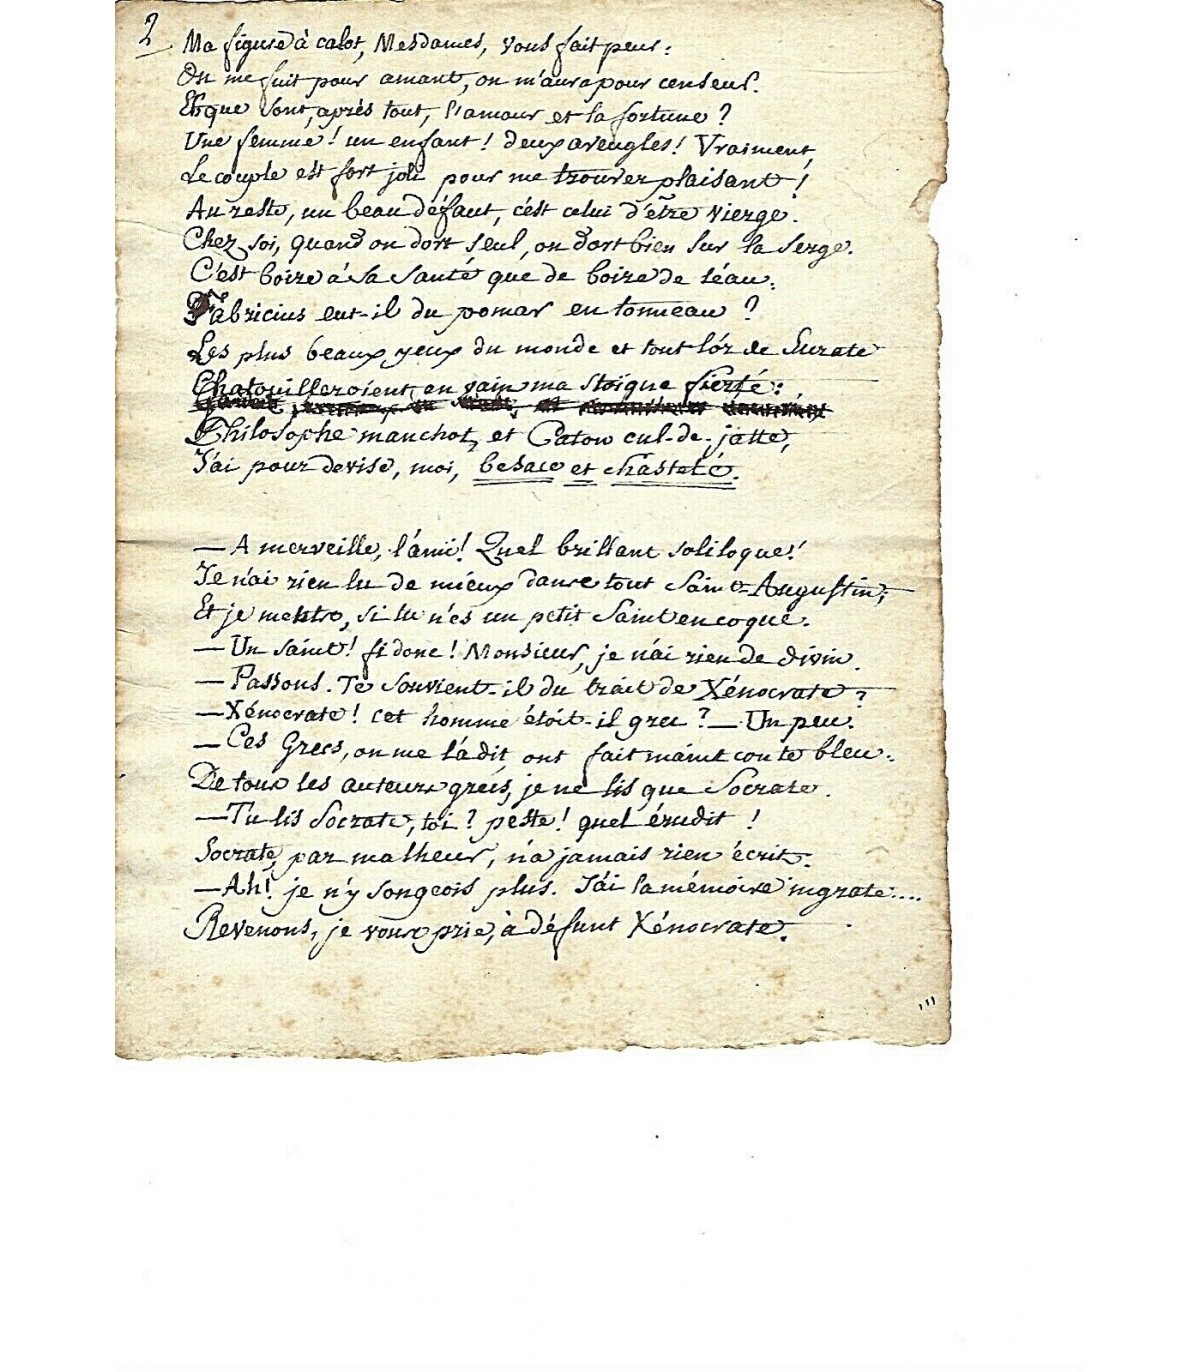 2
Ma figure à calot, Mesdames, vous fait peur:
On me fuit pour amant, on m'aura pour censeur.
Et que sont, après tout, l'amour et la fortune?
Une femme! un enfant! deux aveugles! Vraiment
Le couple est fort joli pour me trouver plaisant!
Au reste, un beau défaut, c'est celui d'être vierge.
Chez soi, quand on dort seul, on dort bien sur la serge.
C'est boire à sa santé que de boire de l'éau;
Fabricius eut-il du pomar en tonneau?
Les plus beaux yeux du monde et tout l'or de Surate
Chatouilleroient en vain ma stoique fierté:
Philosophe manchot, et Caton cul-de-jatte,
J'ai pour devise, moi, besace et chasteté.
— A merveille, l'ami! Quel brillant soliloque!
Je n'ai rien lu de mieux dans tout Saint-Augustin;
Et je meure, si tu n'es un petit Saint en coque.
— Un saint! fi donc! Monsieur, je n'ai rien de divin.
— Passons. Te souvient-il du trait de Xénocrate?
— Xénocrate! cet homme étoit-il grec? — Un peu.
— Ces Grecs, on me l'a dit, ont fait maint conte bleu.
De tous les auteurs grecs, je ne lis que Socrate.
— Tu lis Socrate, toi? peste! quel érudit!
Socrate, par malheur, n'a jamais rien écrit.
— Ah! je n'y songeois plus. J'ai la mémoire ingrate....
Revenons, je vous prie, à défunt Xénocrate.